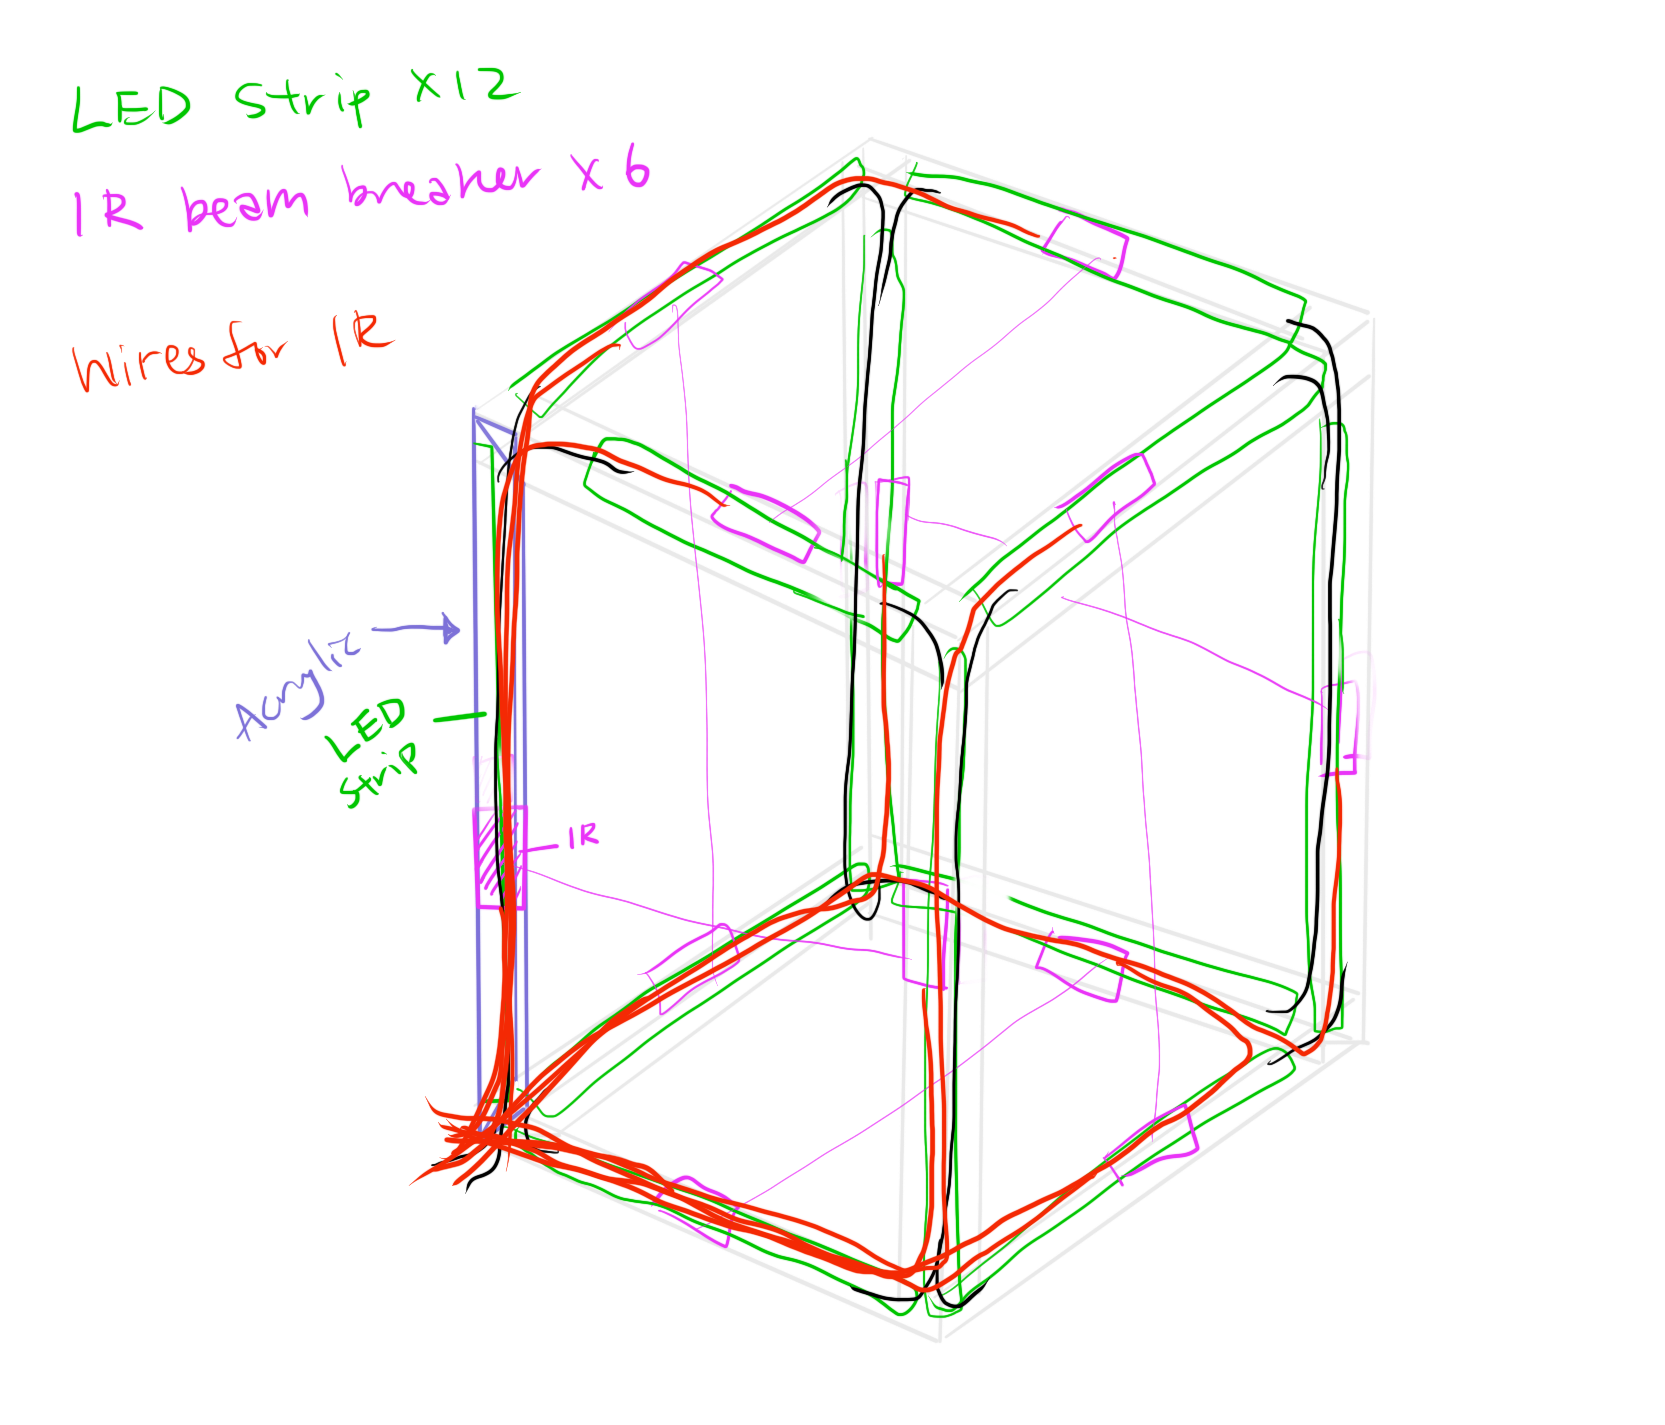 LED Strip X12
IR beam breaker X 6
Wires for IR
Acrylic
LED
Strip
IR